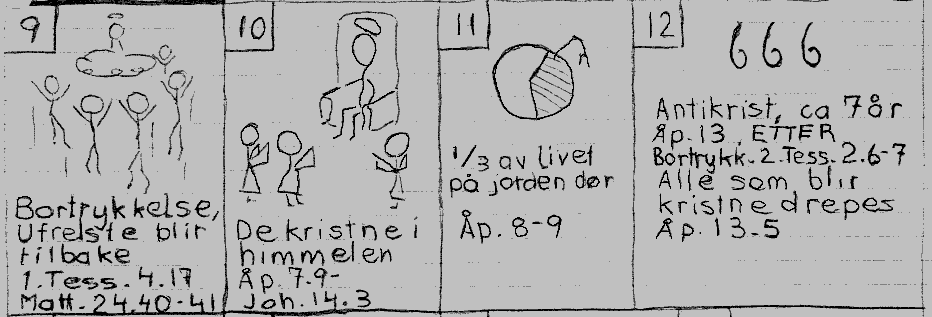 9
Bortrykkelse,
Ufrelste blir
tilbake
1.Tess.4.17
Matt.24.40-41
10
De kristne i
himmelen
Åp.7.9-
Joh.14.3
11
1/3 av livet
på jorden dør
Åp. 8-9
12
666
Antikrist, ca 7 år
Åp.13. ETTER
Bortrykk.2.Tess.2.6-7
Alle som blir
kristne drepes
Åp.13-5